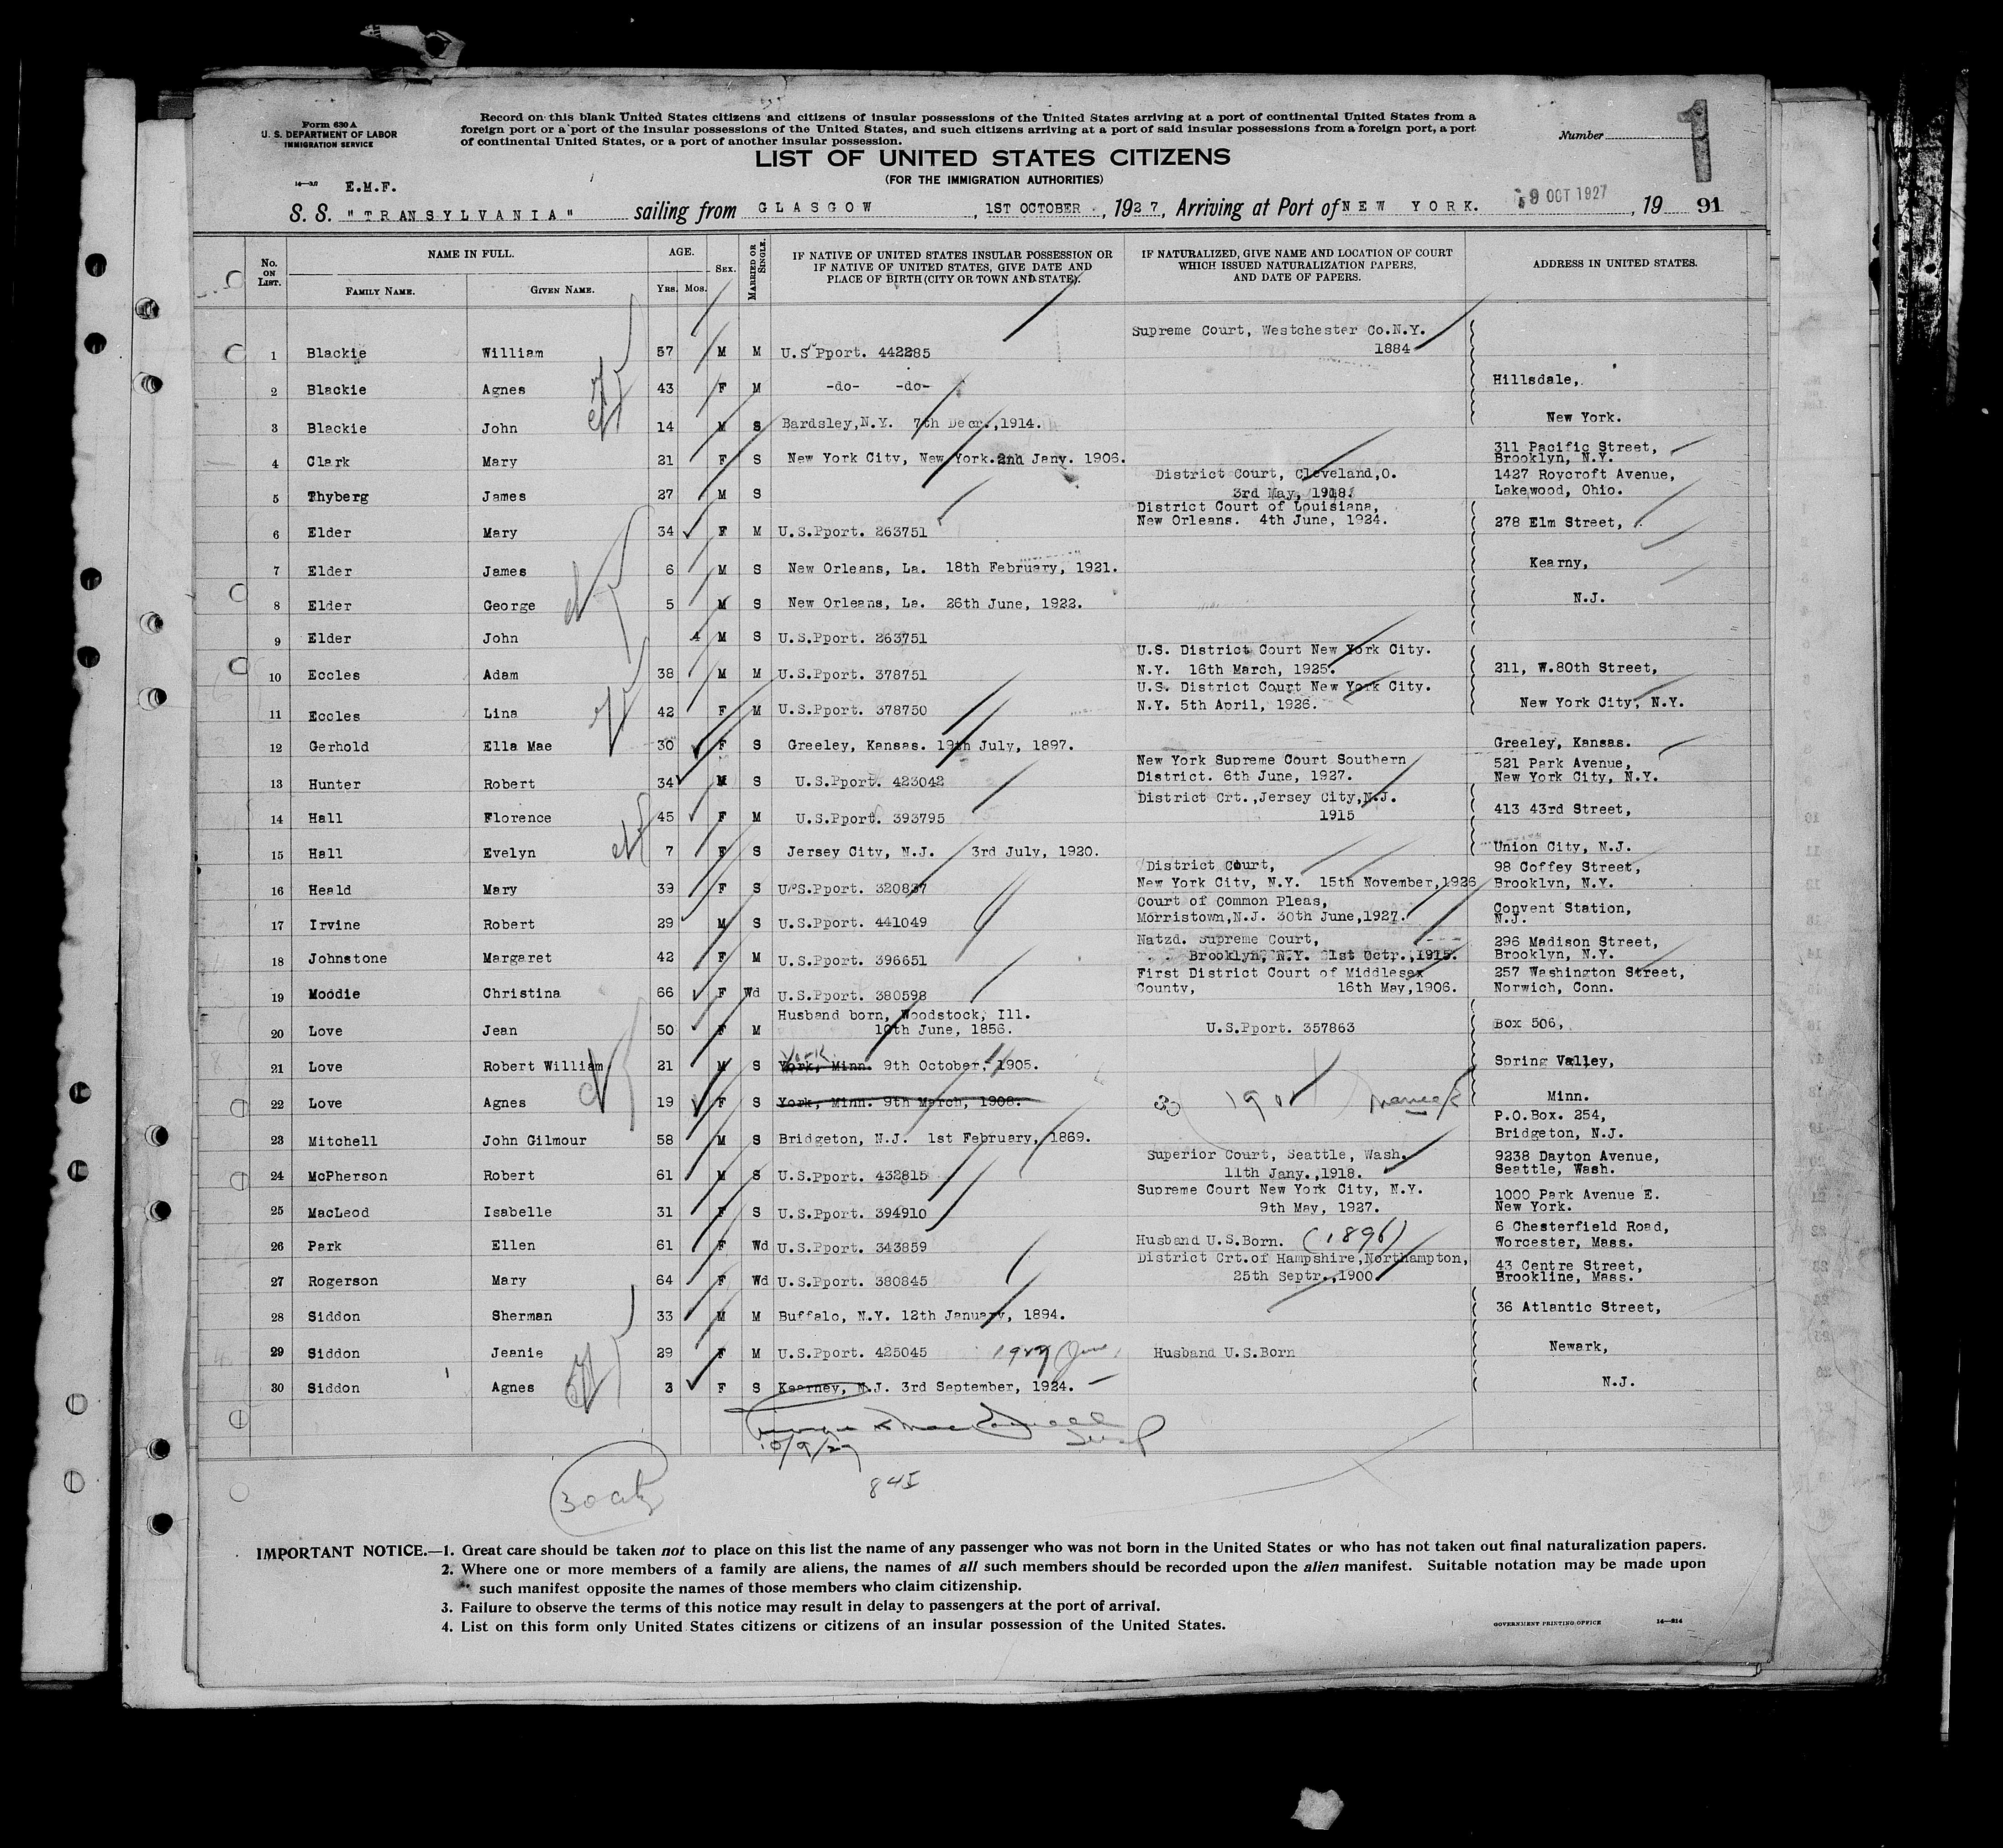 Form 630 A
U. S. DEPARTMENT OF LABOR
IMMIGRATION SERVICE
Record on this blank United States citizens and citizens of insular possessions of the United States arriving at a port of continental United States from a
foreign port or a port of the insular possessions of the United States, and such citizens arriving at a port of said insular possessions from a foreign port, a port
of continental United States, or a port of another insular possession.
Number 1
LIST OF UNITED STATES CITIZENS
(FOR THE IMMIGRATION AUTHORITIES)
E.M.F.
S. S. "TRANSYLVANIA" sailing from GLASGOW, 1ST OCTOBER, 1927, Arriving at Port of NEW YORK. 9 OCT 1927, 19 91
No. ON LIST. NAME IN FULL. AGE. SEX. MARRIED OR SINGLE. IF NATIVE OF UNITED STATES INSULAR POSSESSION OR IF NATIVE OF UNITED STATES, GIVE DATE AND PLACE OF BIRTH (CITY OR TOWN AND STATE). IF NATURALIZED, GIVE NAME AND LOCATION OF COURT WHICH ISSUED NATURALIZATION PAPERS, AND DATE OF PAPERS. ADDRESS IN UNITED STATES.
FAMILY NAME. GIVEN NAME. YRS. MOS.
1 Blackie William 57 M M U.S Pport. 442285 Supreme Court, Westchester Co.N.Y. 1884
2 Blackie Agnes 43 F M -do- -do- Hillsdale,
3 Blackie John 14 M S Bardsley,N.Y. 7th Decr.,1914. New York.
4 Clark Mary 21 F S New York City, New York.2nd Jany. 1906. 311 Pacific Street, Brooklyn, N.Y.
5 Thyberg James 27 M S District Court, Cleveland,O. 3rd May, 1918. 1427 Roycroft Avenue, Lakewood, Ohio.
6 Elder Mary 34 F M U.S.Pport. 263751 District Court of Louisiana, New Orleans. 4th June, 1924. 278 Elm Street,
7 Elder James 6 M S New Orleans, La. 18th February, 1921. Kearny,
8 Elder George 5 M S New Orleans, La. 26th June, 1922. N.J.
9 Elder John 4 M S U.S.Pport. 263751
10 Eccles Adam 38 M M U.S.Pport. 378751 U.S. District Court New York City. N.Y. 16th March, 1925. 211, W.80th Street,
11 Eccles Lina 42 F M U.S.Pport. 378750 U.S. District Court New York City. N.Y. 5th April, 1926. New York City, N.Y.
12 Gerhold Ella Mae 30 F S Greeley, Kansas. 19th July, 1897. Greeley, Kansas.
13 Hunter Robert 34 M S U.S.Pport. 423042 New York Supreme Court Southern District. 6th June, 1927. 521 Park Avenue, New York City, N.Y.
14 Hall Florence 45 F M U.S.Pport. 393795 District Crt.,Jersey City,N.J. 1915 413 43rd Street,
15 Hall Evelyn 7 F S Jersey City, N.J. 3rd July, 1920. Union City, N.J.
16 Heald Mary 39 F S U.S.Pport. 320837 District Court, New York City, N.Y. 15th November,1926 98 Coffey Street, Brooklyn, N.Y.
17 Irvine Robert 29 M S U.S.Pport. 441049 Court of Common Pleas, Morristown,N.J. 30th June,1927. Convent Station, N.J.
18 Johnstone Margaret 42 F M U.S.Pport. 396651 Natzd. Supreme Court, Brooklyn, N.Y. 21st Octr.,1915. 296 Madison Street, Brooklyn, N.Y.
19 Moodie Christina 66 F Wd U.S.Pport. 380598 First District Court of Middlesex County, 16th May,1906. 257 Washington Street, Norwich, Conn.
20 Love Jean 50 F M Husband born, Woodstock, Ill. 10th June, 1856. U.S.Pport. 357863 Box 506,
21 Love Robert William 21 M S York York, Minn. 9th October, 1905. Spring Valley,
22 Love Agnes 19 F S York, Minn. 9th March, 1908. Minn.
23 Mitchell John Gilmour 58 M S Bridgeton, N.J. 1st February, 1869. P.O.Box. 254, Bridgeton, N.J.
24 McPherson Robert 61 M S U.S.Pport. 432815 Superior Court, Seattle, Wash. 11th Jany.,1918. 9238 Dayton Avenue, Seattle, Wash.
25 MacLeod Isabelle 31 F S U.S.Pport. 394910 Supreme Court New York City, N.Y. 9th May, 1927. 1000 Park Avenue E. New York.
26 Park Ellen 61 F Wd U.S.Pport. 343859 Husband U.S.Born. (1896) 6 Chesterfield Road, Worcester, Mass.
27 Rogerson Mary 64 F Wd U.S.Pport. 380845 District Crt.of Hampshire,Northampton, 25th Septr.,1900 43 Centre Street, Brookline, Mass.
28 Siddon Sherman 33 M M Buffalo, N.Y. 12th January, 1894. 36 Atlantic Street,
29 Siddon Jeanie 29 F M U.S.Pport. 425045 Husband U.S.Born Newark,
30 Siddon Agnes 3 F S Kearney, N.J. 3rd September, 1924. N.J.
10/9/27
845
IMPORTANT NOTICE.—1. Great care should be taken not to place on this list the name of any passenger who was not born in the United States or who has not taken out final naturalization papers.
2. Where one or more members of a family are aliens, the names of all such members should be recorded upon the alien manifest. Suitable notation may be made upon
such manifest opposite the names of those members who claim citizenship.
3. Failure to observe the terms of this notice may result in delay to passengers at the port of arrival.
4. List on this form only United States citizens or citizens of an insular possession of the United States.
GOVERNMENT PRINTING OFFICE 14—214